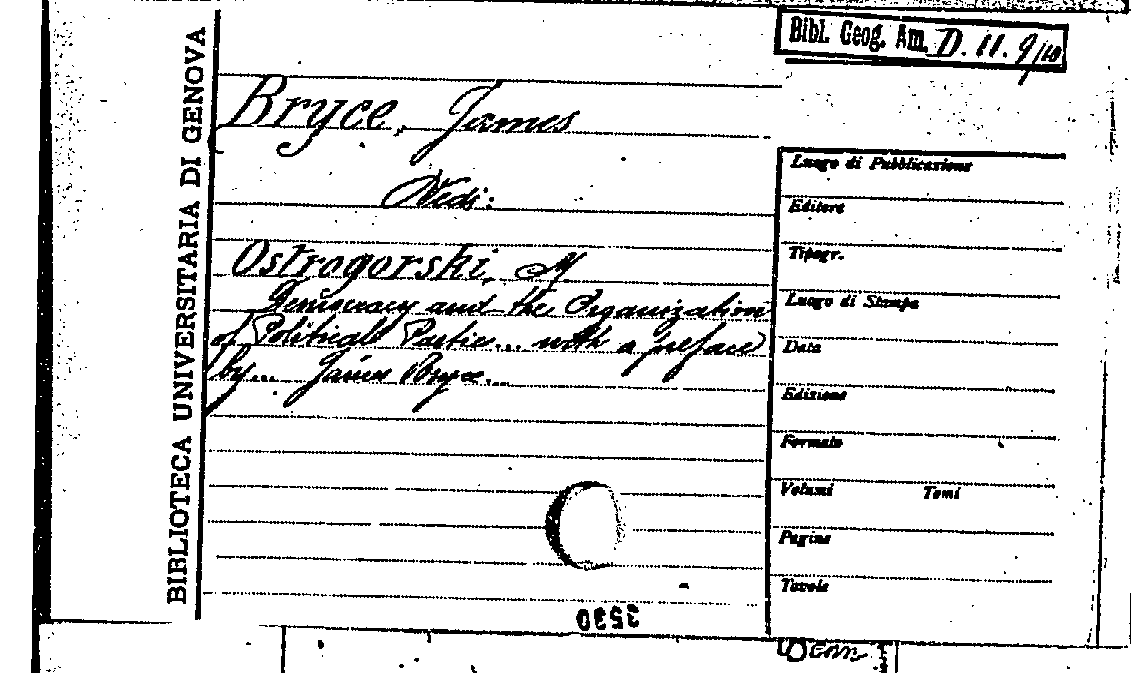 Bibl. Geog. Am. D. 11. 9/10
BIBLIOTECA UNIVERSITARIA DI GENOVA
Bryce, James
Vedi:
Ostrogorski, M
Democracy and the Organization
of Political Partie... with a preface
by... James Bryce...
Luogo di Pubblicazione
Editore
Tipogr.
Luogo di Stampa
Data
Edizione
Formato
Volumi Tomi
Pagine
Tavole